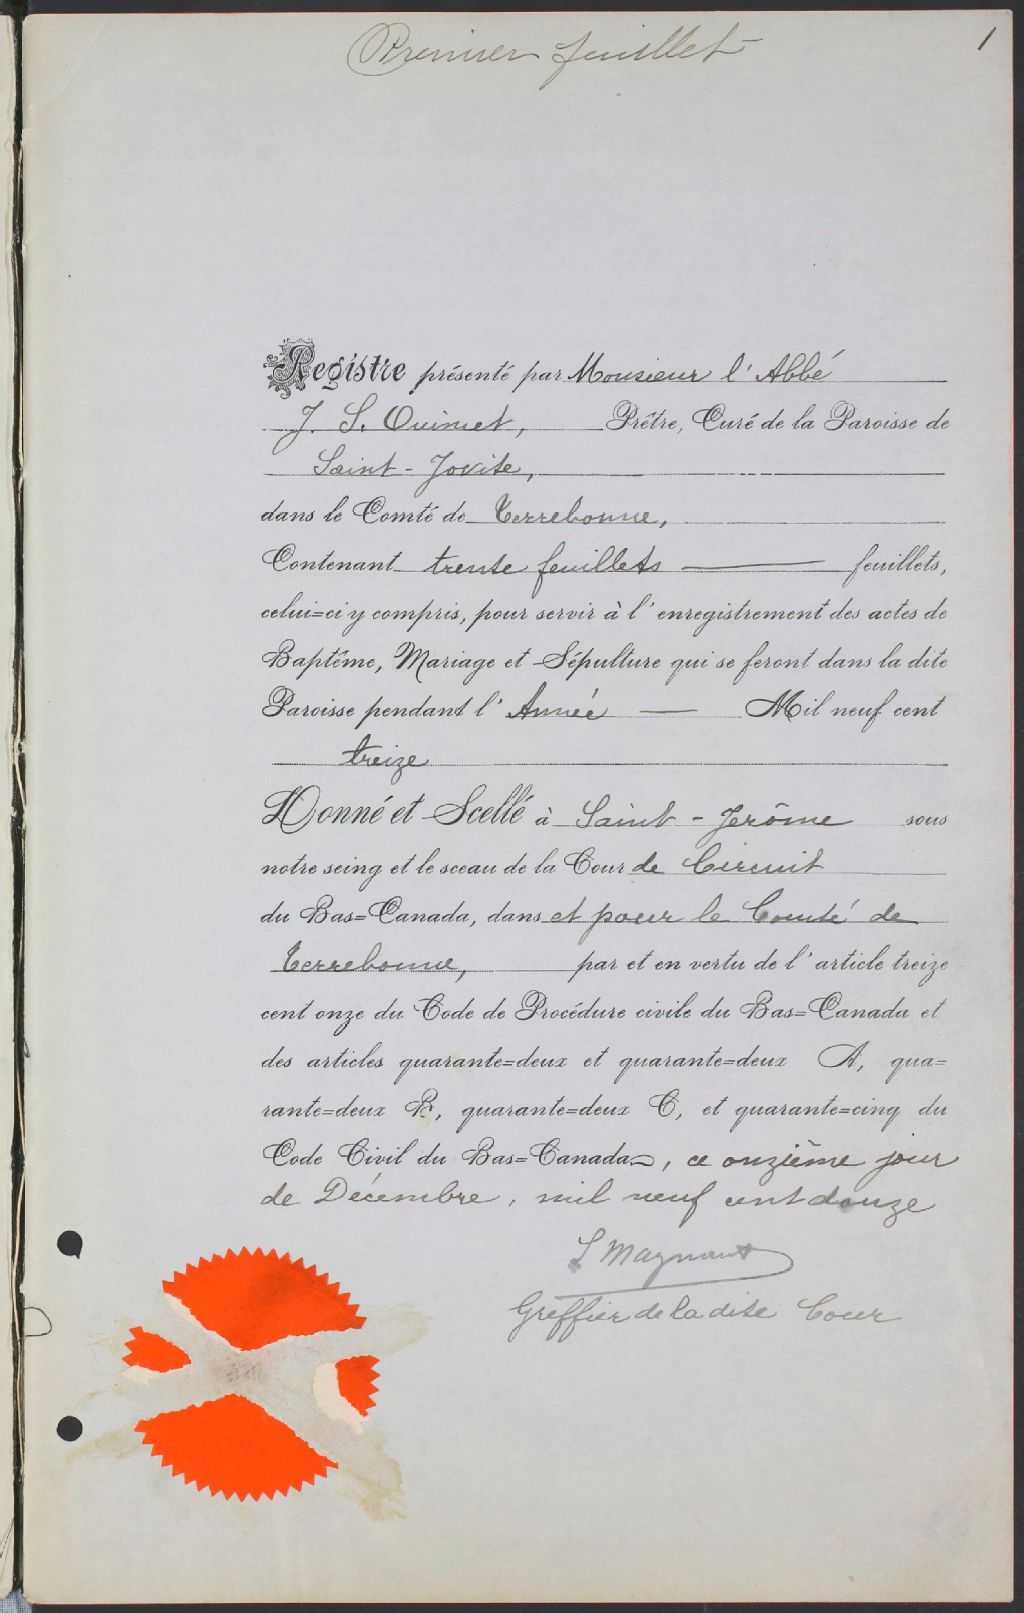 Premier feuillet
1
Registre présenté par Monsieur l'Abbé
J. S. Ouimet, Prêtre, Curé de la Paroisse de
Saint-Jovite,
dans le Comté de Terrebonne,
Contenant trente feuillets feuillets,
celui=ci y compris, pour servir à l'enregistrement des actes de
Baptême, Mariage et Sépulture qui se feront dans la dite
Paroisse pendant l'Année Mil neuf cent
treize
Donné et Scellé à Saint-Jerôme sous
notre seing et le sceau de la Cour de Circuit
du Bas=Canada, dans et pour le Comté de
Terrebonne, par et en vertu de l'article treize
cent onze du Code de Procédure civile du Bas=Canada et
des articles quarante=deux et quarante=deux A, qua=
rante=deux B, quarante=deux C, et quarante=cinq du
Code Civil du Bas=Canada, ce onzième jour
de Décembre, mil neuf cent douze
Greffier de la dite Cour